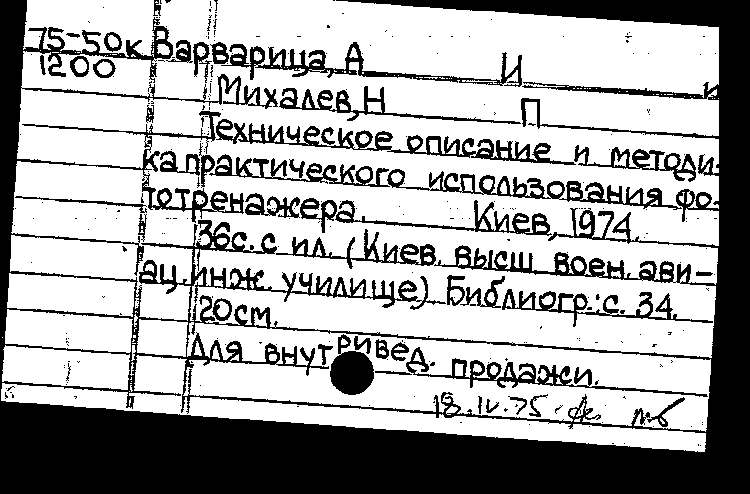 75-50к Варварица, А И и
1200
Михалев, Н П
Техническое описание и методи-
ка практического использования фо-
тотренажера. Киев, 1974.
36с. с ил. (Киев. высш. воен. ави-
ац. инж. училище) Библиогр.: с. 34.
20см.
Для внутриведед. продажи.
18.IV.75